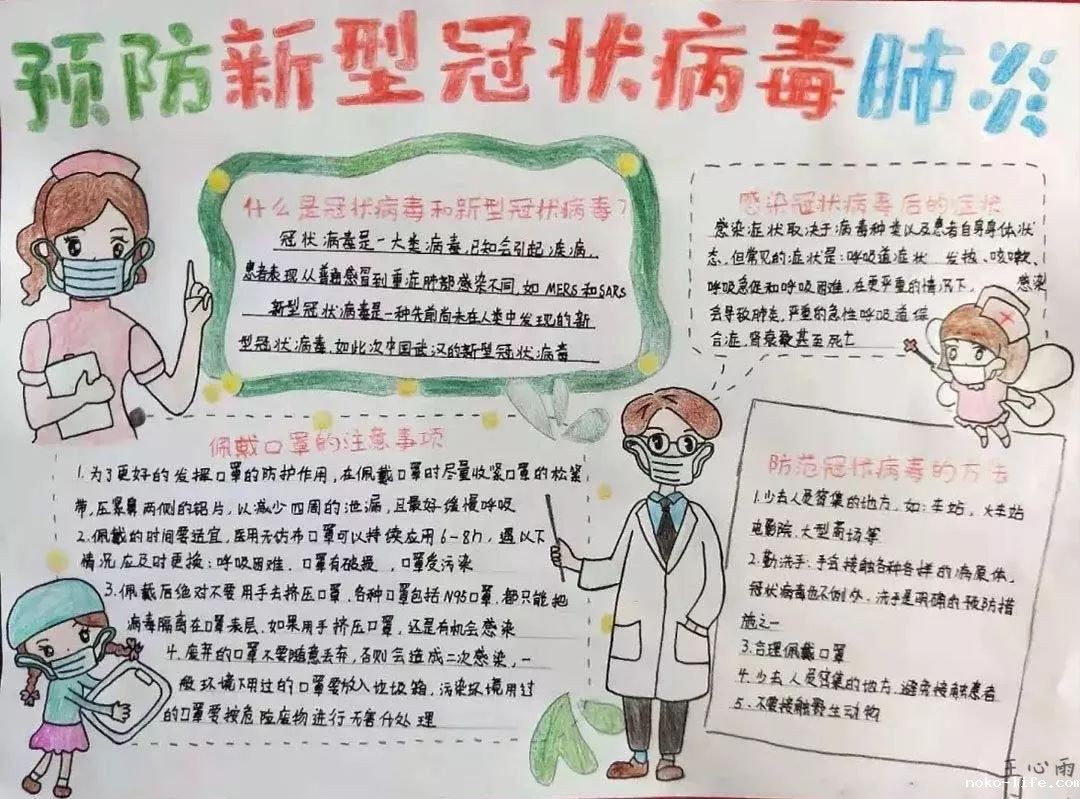 预防新型冠状病毒肺炎
什么是冠状病毒和新型冠状病毒?
冠状病毒是一大类病毒,已知会引起疾病,
患者表现从普通感冒到重症肺部感染不同,如 MERS 和 SARS
新型冠状病毒是一种先前尚未在人类中发现的新
型冠状病毒,如此次中国武汉的新型冠状病毒
感染冠状病毒后的症状
感染症状取决于病毒种类以及患者自身身体状
态,但常见的症状是:呼吸道症状 发热、咳嗽、
呼吸急促和呼吸困难,在更严重的情况下, 感染
会导致肺炎,严重的急性呼吸道综
合症,肾衰竭甚至死亡
佩戴口罩的注意事项
1.为了更好的发挥口罩的防护作用,在佩戴口罩时尽量收紧口罩的松紧
带,压紧鼻两侧的铝片,以减少四周的泄漏,且最好缓慢呼吸
2.佩戴的时间要适宜,医用无仿布口罩可以持续应用6-8h,遇以下
情况应及时更换:呼吸困难、口罩有破损、口罩受污染
3.佩戴后绝对不要用手去挤压口罩,各种口罩包括N95口罩,都只能把
病毒隔离在口罩表层,如果用手挤压口罩,还是有机会感染
4.废弃的口罩不要随意丢弃,否则会造成二次感染,一
般环境下用过的口罩要放入垃圾箱,污染环境用过
的口罩要按危险废物进行无害什处理
防范冠状病毒的方法
1.少去人员密集的地方,如:车站,火车站
电影院,大型商场等
2.勤洗手:手会接触各种各样的病原体,
冠状病毒也不例外,洗手是明确的预防措
施之一
3.合理佩戴口罩
4.少去人员密集的地方,避免接触患者
5.不要接触野生动物
王心雨
noko-life.com